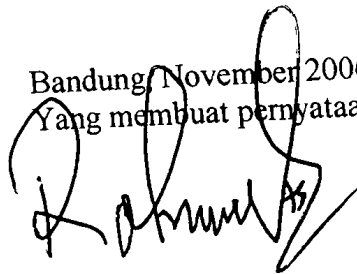 Bandung, November 2006
Yang membuat pernyataa